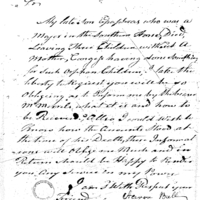 Sir
My late Son Grosperes who was a
Major in the Southern Army, Died
Leaving Three Children without a
Mother, Congress having done Something
for such Orphan Children, I take the
liberty to Request you will be so
Obliging as to Inform me by the bearer
what it is and how to
be Received. Also I would wish to
Know how the Accounts Stood at
the time of his Death, their Information
will oblige me Much and in
Return should be Happy to Render
you any Service in my Power
I am With Respect your
Friend